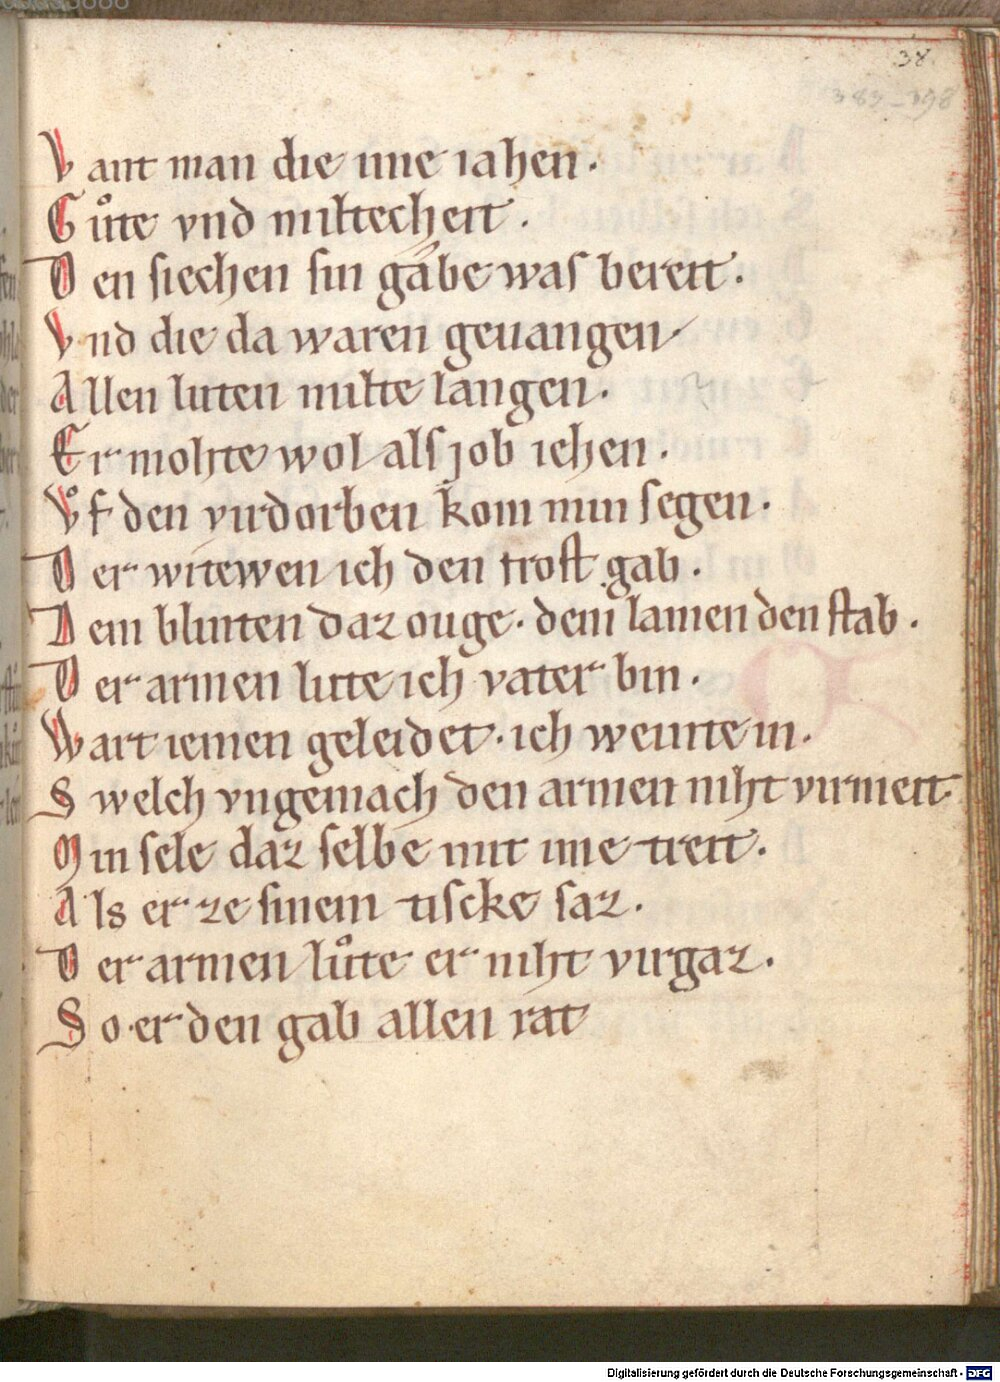 38
383-398
Vant man die ime iahen.
Gůte vnd miltecheit.
Den siechen sin gabe was bereit.
Vnd die da waren geuangen
Allen luten milte langen.
Er mohte wol als job iehen.
Vͦf den virdorben kom min segen.
Der witewen ich den trost gab.
Dem blinten daz ouge. dem lamen den stab.
Der armen lute ich vater bin.
Wart iemen geleidet. ich weinte in.
Swelch vngemach den armen niht virmeit
Min sele daz selbe mit ime treit.
Als er ze sinem tiscke saz.
Der armen lůte er niht virgaz.
So er den gab allen rat
Digitalisierung gefördert durch die Deutsche Forschungsgemeinschaft - DFG